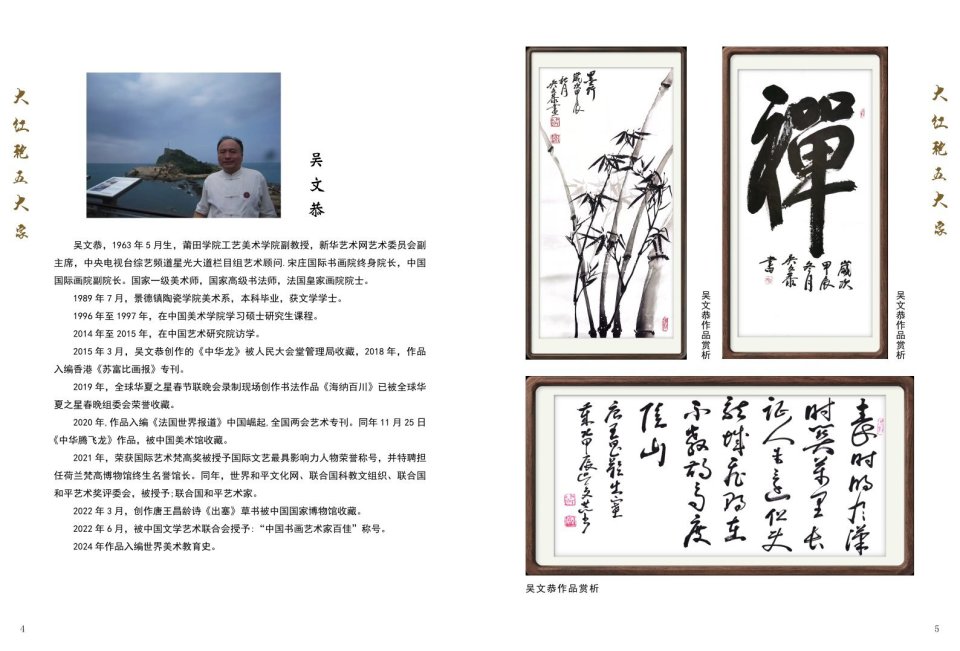 大红袍五大家
吴文恭
吴文恭，1963年5月生，莆田学院工艺美术学院副教授，新华艺术网艺术委员会副
主席，中央电视台综艺频道星光大道栏目组艺术顾问.宋庄国际书画院终身院长，中国
国际画院副院长。国家一级美术师，国家高级书法师，法国皇家画院院士。
1989年7月，景德镇陶瓷学院美术系，本科毕业，获文学学士。
1996年至1997年，在中国美术学院学习硕士研究生课程。
2014年至2015年，在中国艺术研究院访学。
2015年3月，吴文恭创作的《中华龙》被人民大会堂管理局收藏，2018年，作品
入编香港《苏富比画报》专刊。
2019年，全球华夏之星春节联晚会录制现场创作书法作品《海纳百川》已被全球华
夏之星春晚组委会荣誉收藏。
2020年.作品入编《法国世界报道》中国崛起.全国两会艺术专刊。同年11月25日
《中华腾飞龙》作品，被中国美术馆收藏。
2021年，荣获国际艺术梵高奖被授予国际文艺最具影响力人物荣誉称号，并特聘担
任荷兰梵高博物馆终生名誉馆长。同年，世界和平文化网、联合国科教文组织、联合国
和平艺术奖评委会，被授予:联合国和平艺术家。
2022年3月，创作唐王昌龄诗《出塞》草书被中国国家博物馆收藏。
2022年6月，被中国文学艺术联合会授予:“中国书画艺术家百佳”称号。
2024年作品入编世界美术教育史。
4
墨竹
岁次甲辰
秋月
吴文恭画
吴文恭作品赏析
禪
岁次
甲辰
冬月
吴文恭
书
吴文恭作品赏析
秦时明月汉
时关万里长
征人未还但使
龙城飞将在
不教胡马度
阴山
唐王昌龄出塞
岁次甲辰吴文恭书
吴文恭作品赏析
大红袍五大家
5